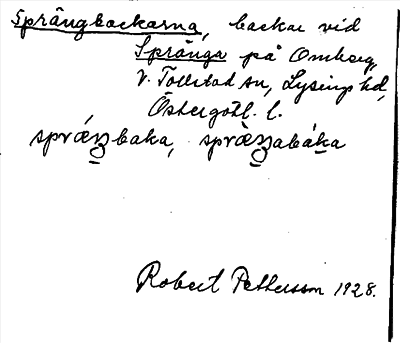 Språngbackarna, backar vid
Språnga på Omberg,
V. Tollstad sn, Lysings hd,
Östergötl. l.
Robert Pettersson 1928.